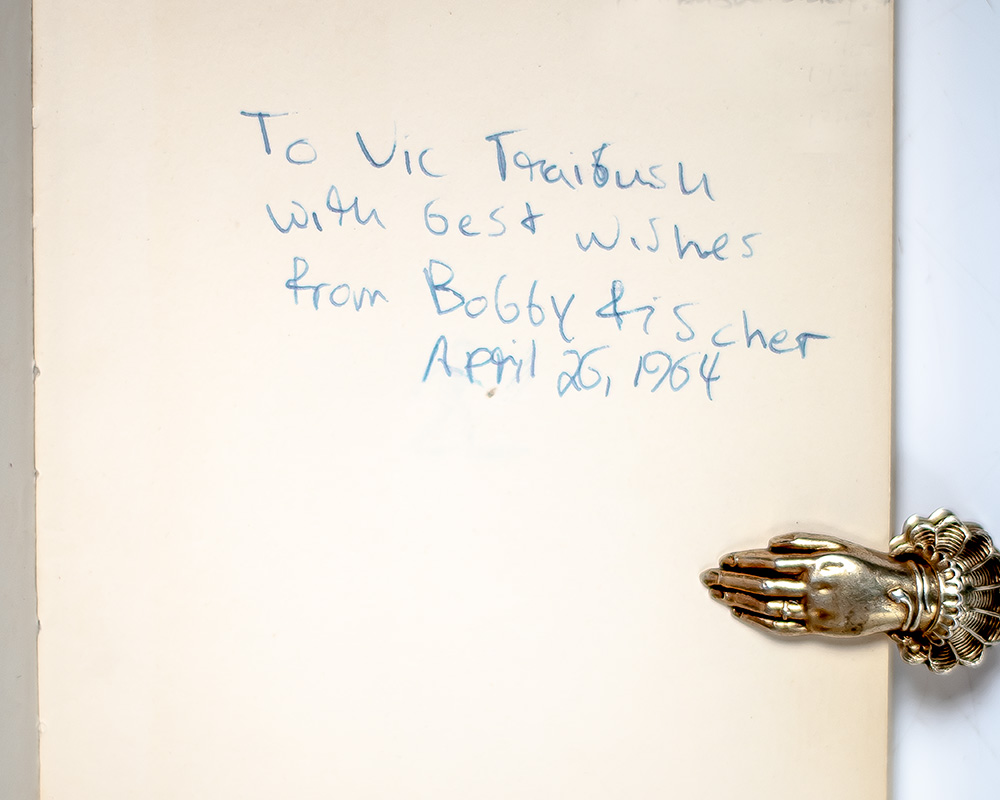 To Vic Traibush
with best wishes
from Bobby Fischer
April 26, 1964